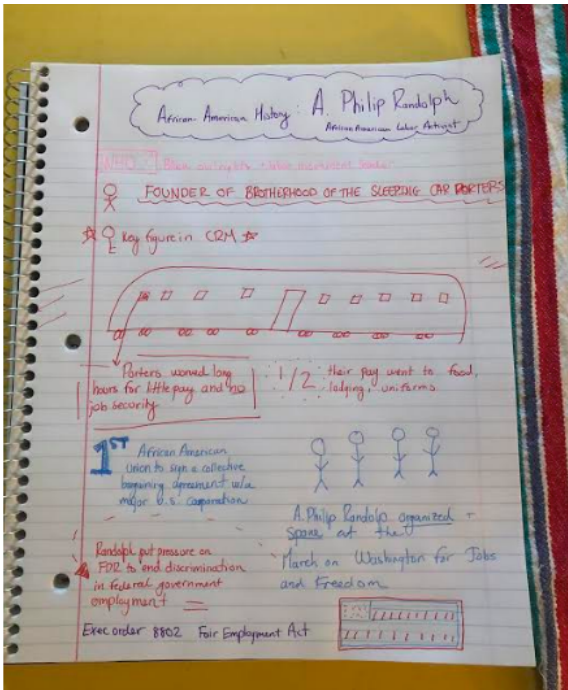 African American History: A. Philip Randolph
African American Labor Activist
WHO: Black civil rights + labor movement leader
FOUNDER OF BROTHERHOOD OF THE SLEEPING CAR PORTERS
Key figure in CRM
Porters worked long
hours for little pay and no
job security
1/2 their pay went to food,
lodging, uniforms
1ST African American
Union to sign a collective
bargaining agreement w/a
major U.S. cooperation
A. Philip Randolp organized +
spoke at the
March on Washington for Jobs
and Freedom
Randolph put pressure on
FDR to end discrimination
in federal government
employment
Exec order 8802 Fair Employment Act